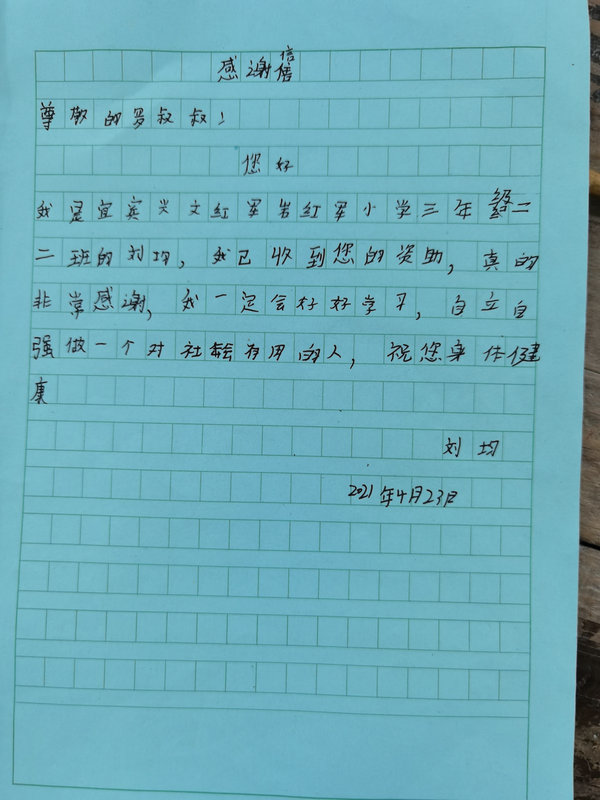 感谢信
尊敬的罗叔叔!
您好
我是宜宾兴文红军岩红军小学三年级二
二班的刘均,我已收到您的资助,真的
非常感谢,我一定会好好学习,自立自
强做一个对社会有用的人,祝您身体健
康
刘均
2021年4月23日